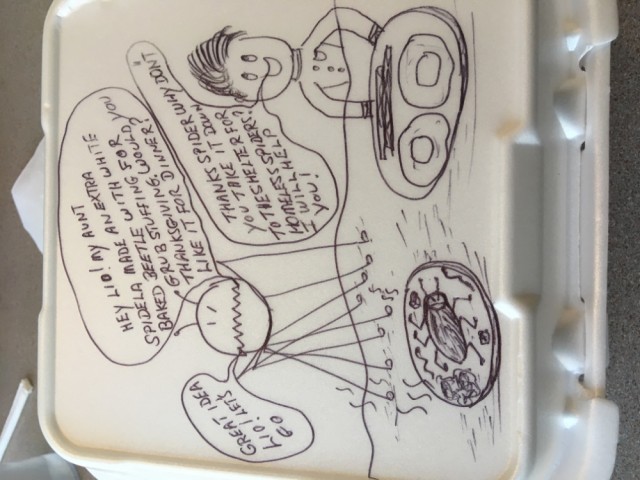 HEY LIO! MY AUNT
SPIDELA MADE AN EXTRA
BAKED BEETLE WITH WHITE
GRUB STUFFING, WOULD YOU
LIKE IT FOR
THANKSGIVING DINNER?
THANKS SPIDER, WHY DON'T
YOU TAKE IT DOWN
TO THE SHELTER FOR
HOMELESS SPIDERS?
I WILL HELP
YOU!
GREAT IDEA
LIO! LET'S
GO!